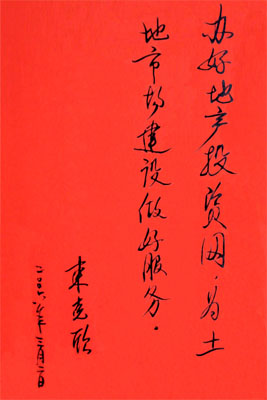 办好地产投资网，为土
地市场建设做好服务。
束克欣
二〇〇六年三月一日